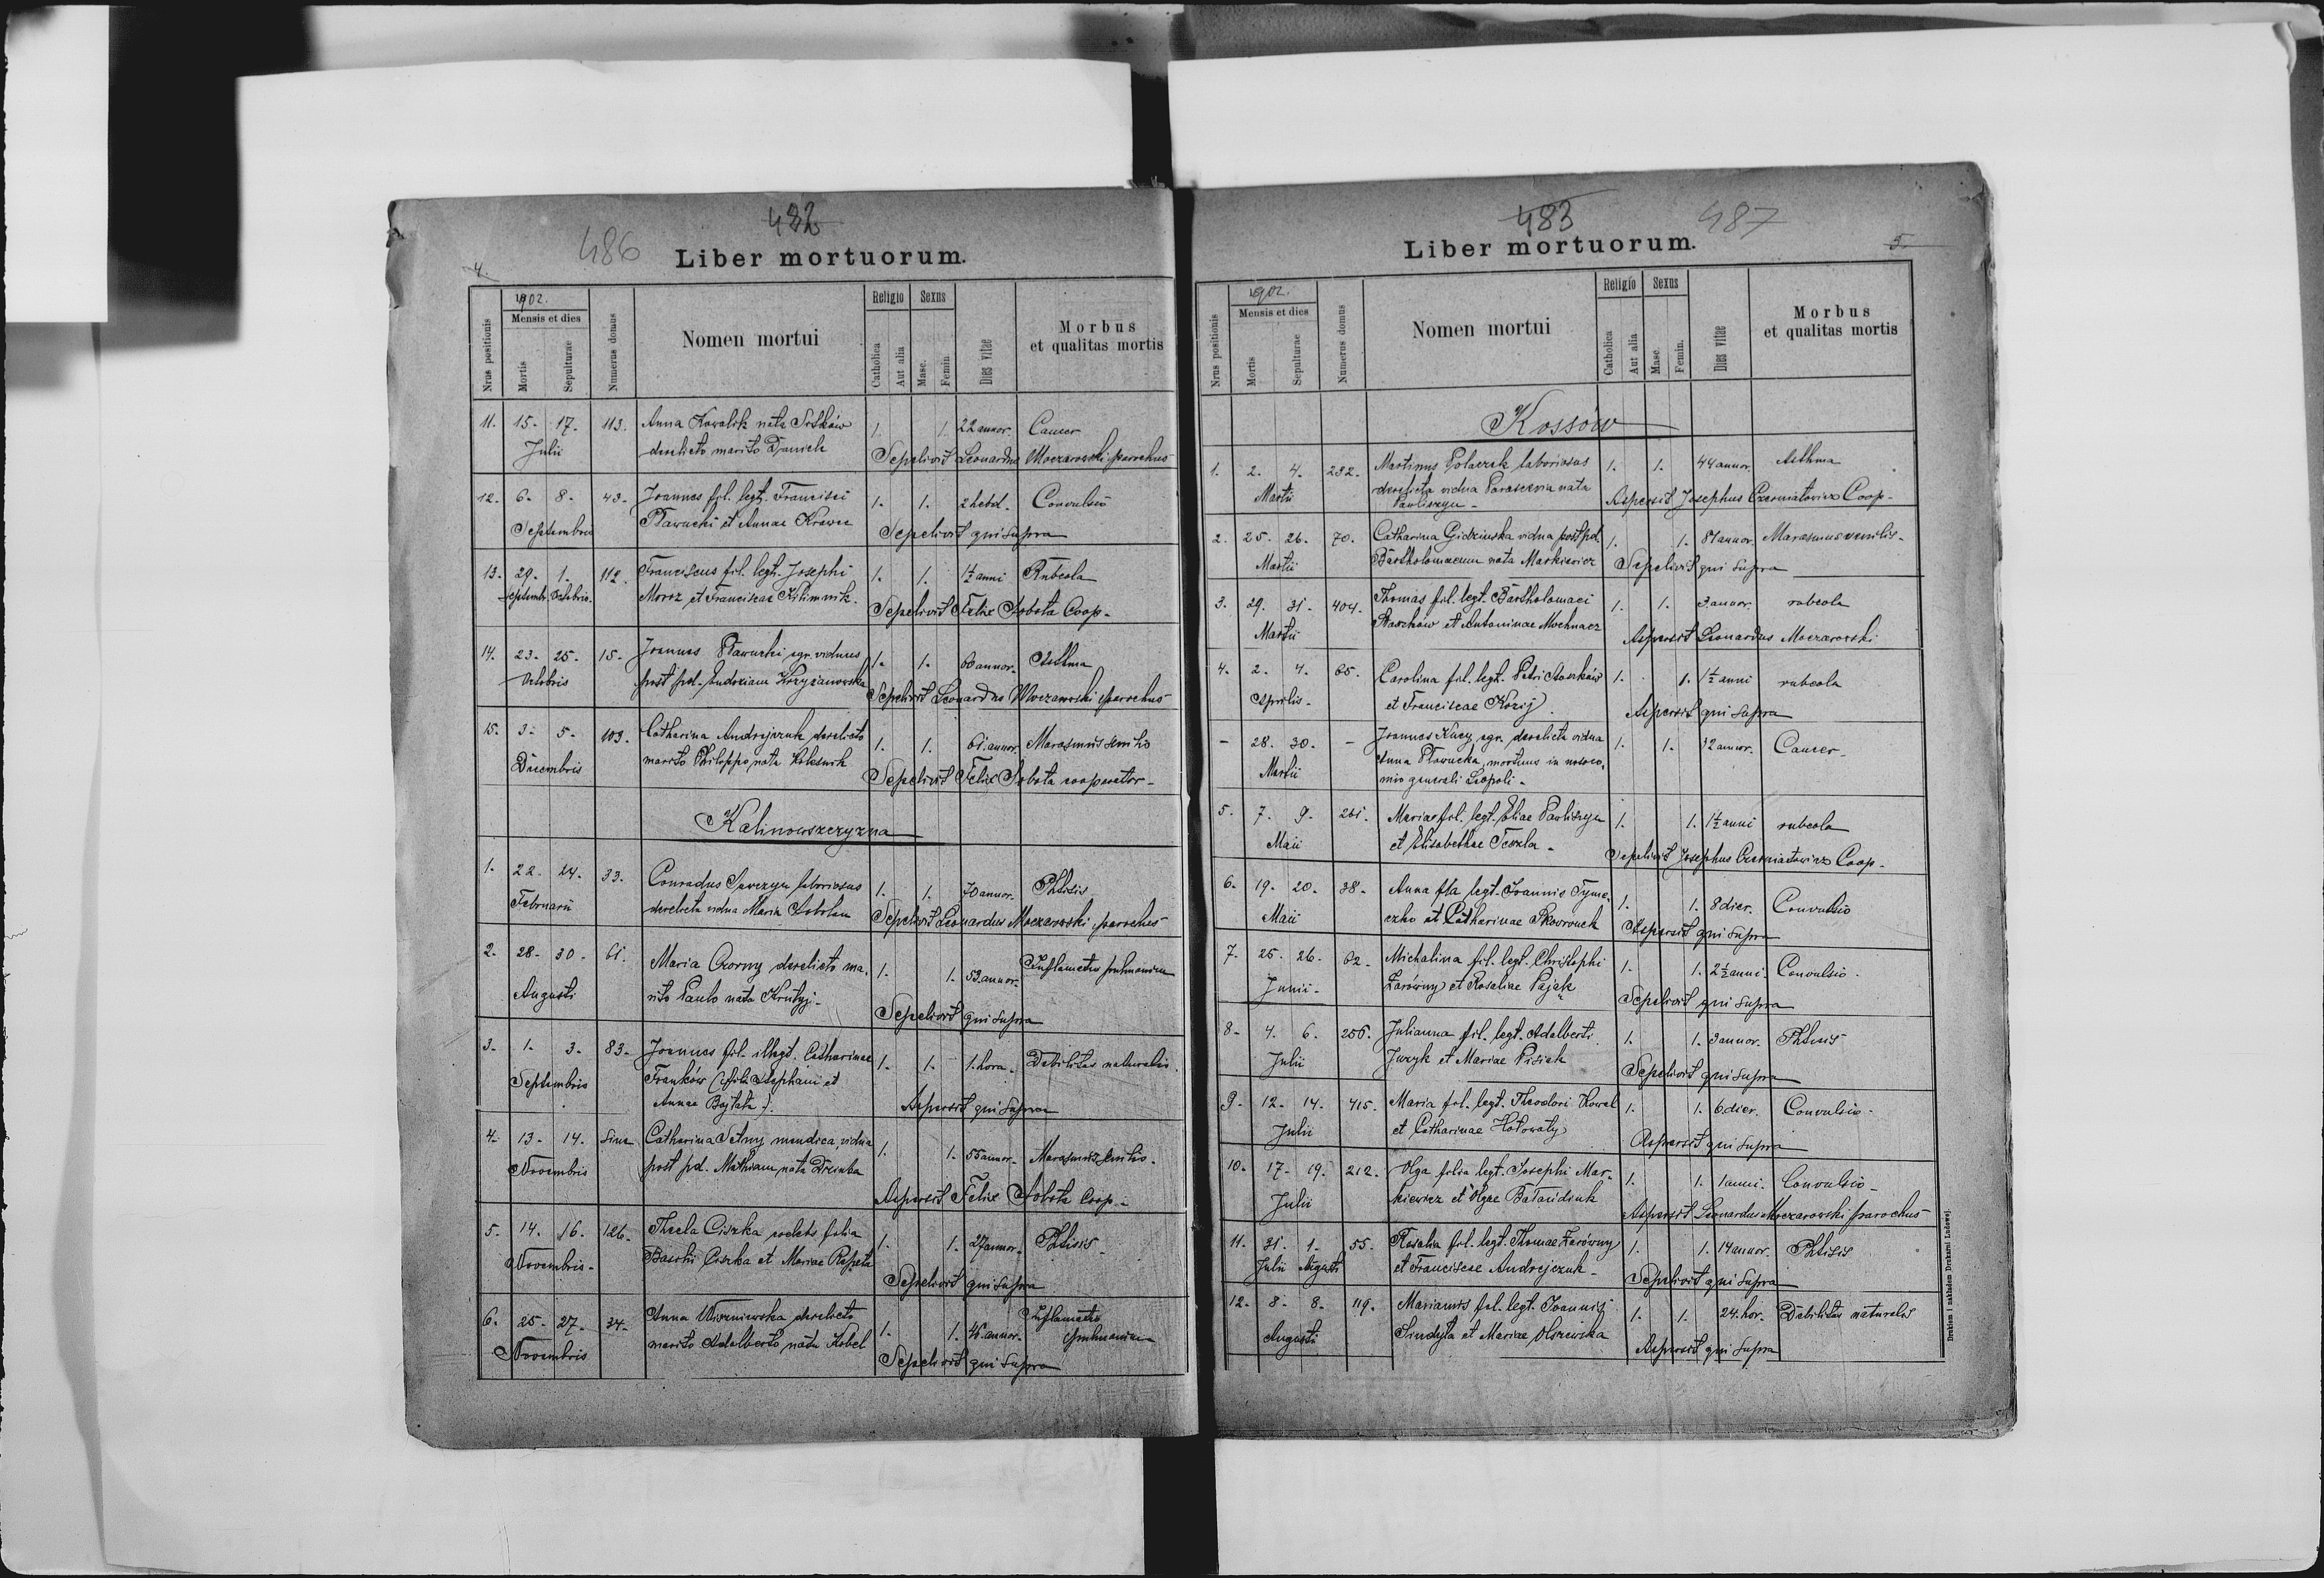 482
486
Liber mortuorum.
4.
Nrus positionis
1902.
Mensis et dies
Mortis
Sepulturae
Numerus domus
Nomen mortui
Religio
Catholica
Aut alia
Sexus
Masc.
Femin.
Dies vitae
Morbus
et qualitas mortis
11. 15. 17. 113. Anna Kowalik nata 1. 1. 22 annor. Cancer
Julii derelicto marito Daniele Sepelivit Leonardus Moczarowski parochus
12. 6. 8. 43. Joannes fil. legt. Francisci 1. 1. 2 hebd. Convulsio
Septembris Pławucki et Annae Krawec Sepelivit qui supra
13. 29. 1. 112. Franciscus fil. legt. Josephi 1. 1. 1½ anni Rubeola
Septembr. Octobris. Moroz et Franciscae Kilimnik. Sepelivit Felix Sobota Coop.
14. 23. 25. 15. Joannes Pławucki agr. viduus 1. 1. 60 annor. Asthma
Octobris post pd. Krzyżanowska Sepelivit Leonardus Moczarowski parochus
15. 3. 5. 103. Catharina Andrejczuk derelicto 1. 1. 61. annor. Marasmus senilis
Decembris marito Philippo nata Kolesnik Sepelivit Felix Sobota cooperator
Kalinowszczyzna
1. 22. 24. 33. Conradus laboriosus 1. 1. 70 annor. Phtisis
Februarii derelicta vidua Maria Sobolew Sepelivit Leonardus Moczarowski parochus
2. 28. 30. 61. Maria Czorny derelicto ma- 1. 1. 53 annor. Inflamatio pulmonum
Augusti rito Paulo nata Krutyj. Sepelivit qui supra
3. 1. 3. 83. Joannes fil. illegt. Catharinae 1. 1. 1. hora. Debilitas naturalis.
Septembris Franków (filia Stephani et
Annae Bajtała). Aspersit qui supra
4. 13. 14. sine Catharina Setny mendica, vidua 1. 1. 55 annor. Marasmus senilis.
Novembris post pd. Mathiam nata Dziuba Aspersit Felix Sobota Coop.
5. 14. 16. 126. Thecla Ciszka coelebs filia 1. 1. 27 annor. Phtisis
Novembris. Basilii Ciszka et Mariae Rapeta Sepelivit qui supra
6. 25. 27. 34. Anna Wiszniewska derelicto 1. 1. 46 annor. Inflamatio
Novembris marito Adalberto nata Kobel pulmonum
Sepelivit qui supra
483 487
Liber mortuorum.
5.
Nrus positionis
1902.
Mensis et dies
Mortis
Sepulturae
Numerus domus
Nomen mortui
Religio
Catholica
Aut alia
Sexus
Masc.
Femin.
Dies vitae
Morbus
et qualitas mortis
Kossów
1. 2. 4. 232. Martinus Polaczek laboriosus 1. 1. 44 annor. Asthma
Martii derelicta vidua Parascevia nata Aspersit Josephus Czerniatowicz Coop.
Pawliszyn
2. 25. 26. 70. Catharina Gidzinska vidua post pd. 1. 1. 81 annor. Marasmus senilis
Martii Bartholomaeum nata Markiewicz Sepelivit qui supra
3. 29. 31. 404. Thomas fil. legt. Bartholomaei 1. 1. 3. annor. rubeola
Martii Staszków et Antoninae Mochnacz Aspersit Leonardus Moczarowski
4. 2. 4. 65. Carolina fil. legt. Petri Staszków 1. 1. 1½ anni rubeola
Aprilis et Franciscae Kozij Aspersit qui supra
- 28. 30. - Joannes agr. derelicta vidua 1. 1. annor. Cancer
Martii Anna Pławucka, mortuus in nosoco-
mio generali Leopoli
5. 7. 9. 261. Maria fil. legt. Eliae Pawliszyn 1. 1. 1½ anni rubeola
Maii et Elisabethae Teszla Sepelivit Josephus Czerniatowicz Coop.
6. 19. 20. 38. Anna fla legt. Joannis Tyme- 1. 1. 8 dier. Convulsio
Maii czko et Catharinae Skowronek Aspersit qui supra
7. 25. 26. 62. Michalina fil. legt. Christophi 1. 1. 2½ anni. Convulsio
Junii Żarówny et Rosaliae Pająk Sepelivit qui supra
8. 4. 6. 256. Julianna fil. legt. Adalberti 1. 1. 3 annor. Phtisis
Julii Juzyk et Mariae Pisiak Sepelivit qui supra
9. 12. 14. 415. Maria fil. legt. Theodori Kowal 1. 1. 6 dier. Convulsio
Julii et Catharinae Hołowaty Aspersit qui supra
10. 17. 19. 212. Olga filia legt. Josephi Mar- 1. 1. 1 anni. Convulsio
Julii kiewicz et Olgae Bałandiuk Aspersit Leonardus Moczarowski parochus
11. 31. 1. 55. Rosalia fil. legt. Thomae Żarówny 1. 1. 14 annor. Phtisis
Julii Augusti et Franciscae Andrejczuk Sepelivit qui supra
12. 8. 8. 119. Marianus fil. legt. Joannis 1. 1. 24. hor. Debilitas naturalis
Augusti et Mariae Olszewska Aspersit qui supra
Drukiem i nakładem Drukarni Ludowej.